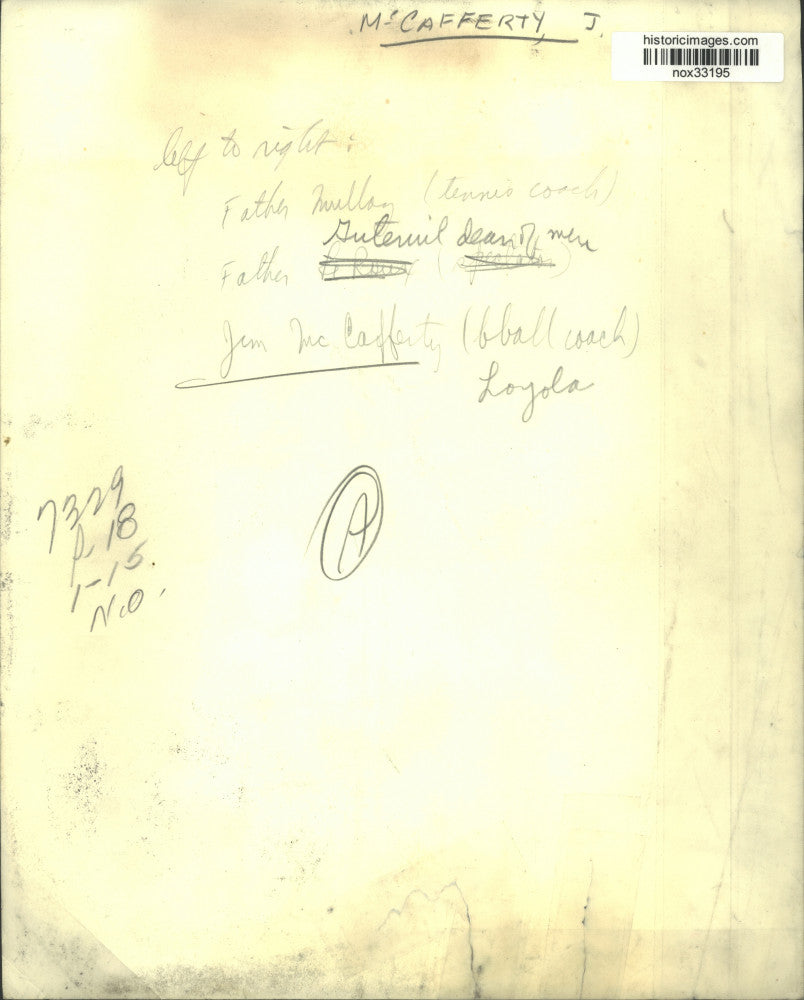 McCAFFERTY, J.
historicimages.com
nox33195
left to right:
Father Mulloy (tennis coach)
dean of men
Father
Jim McCafferty (bball coach)
Loyola
7329
p. 18
1-15.
N.O.
A